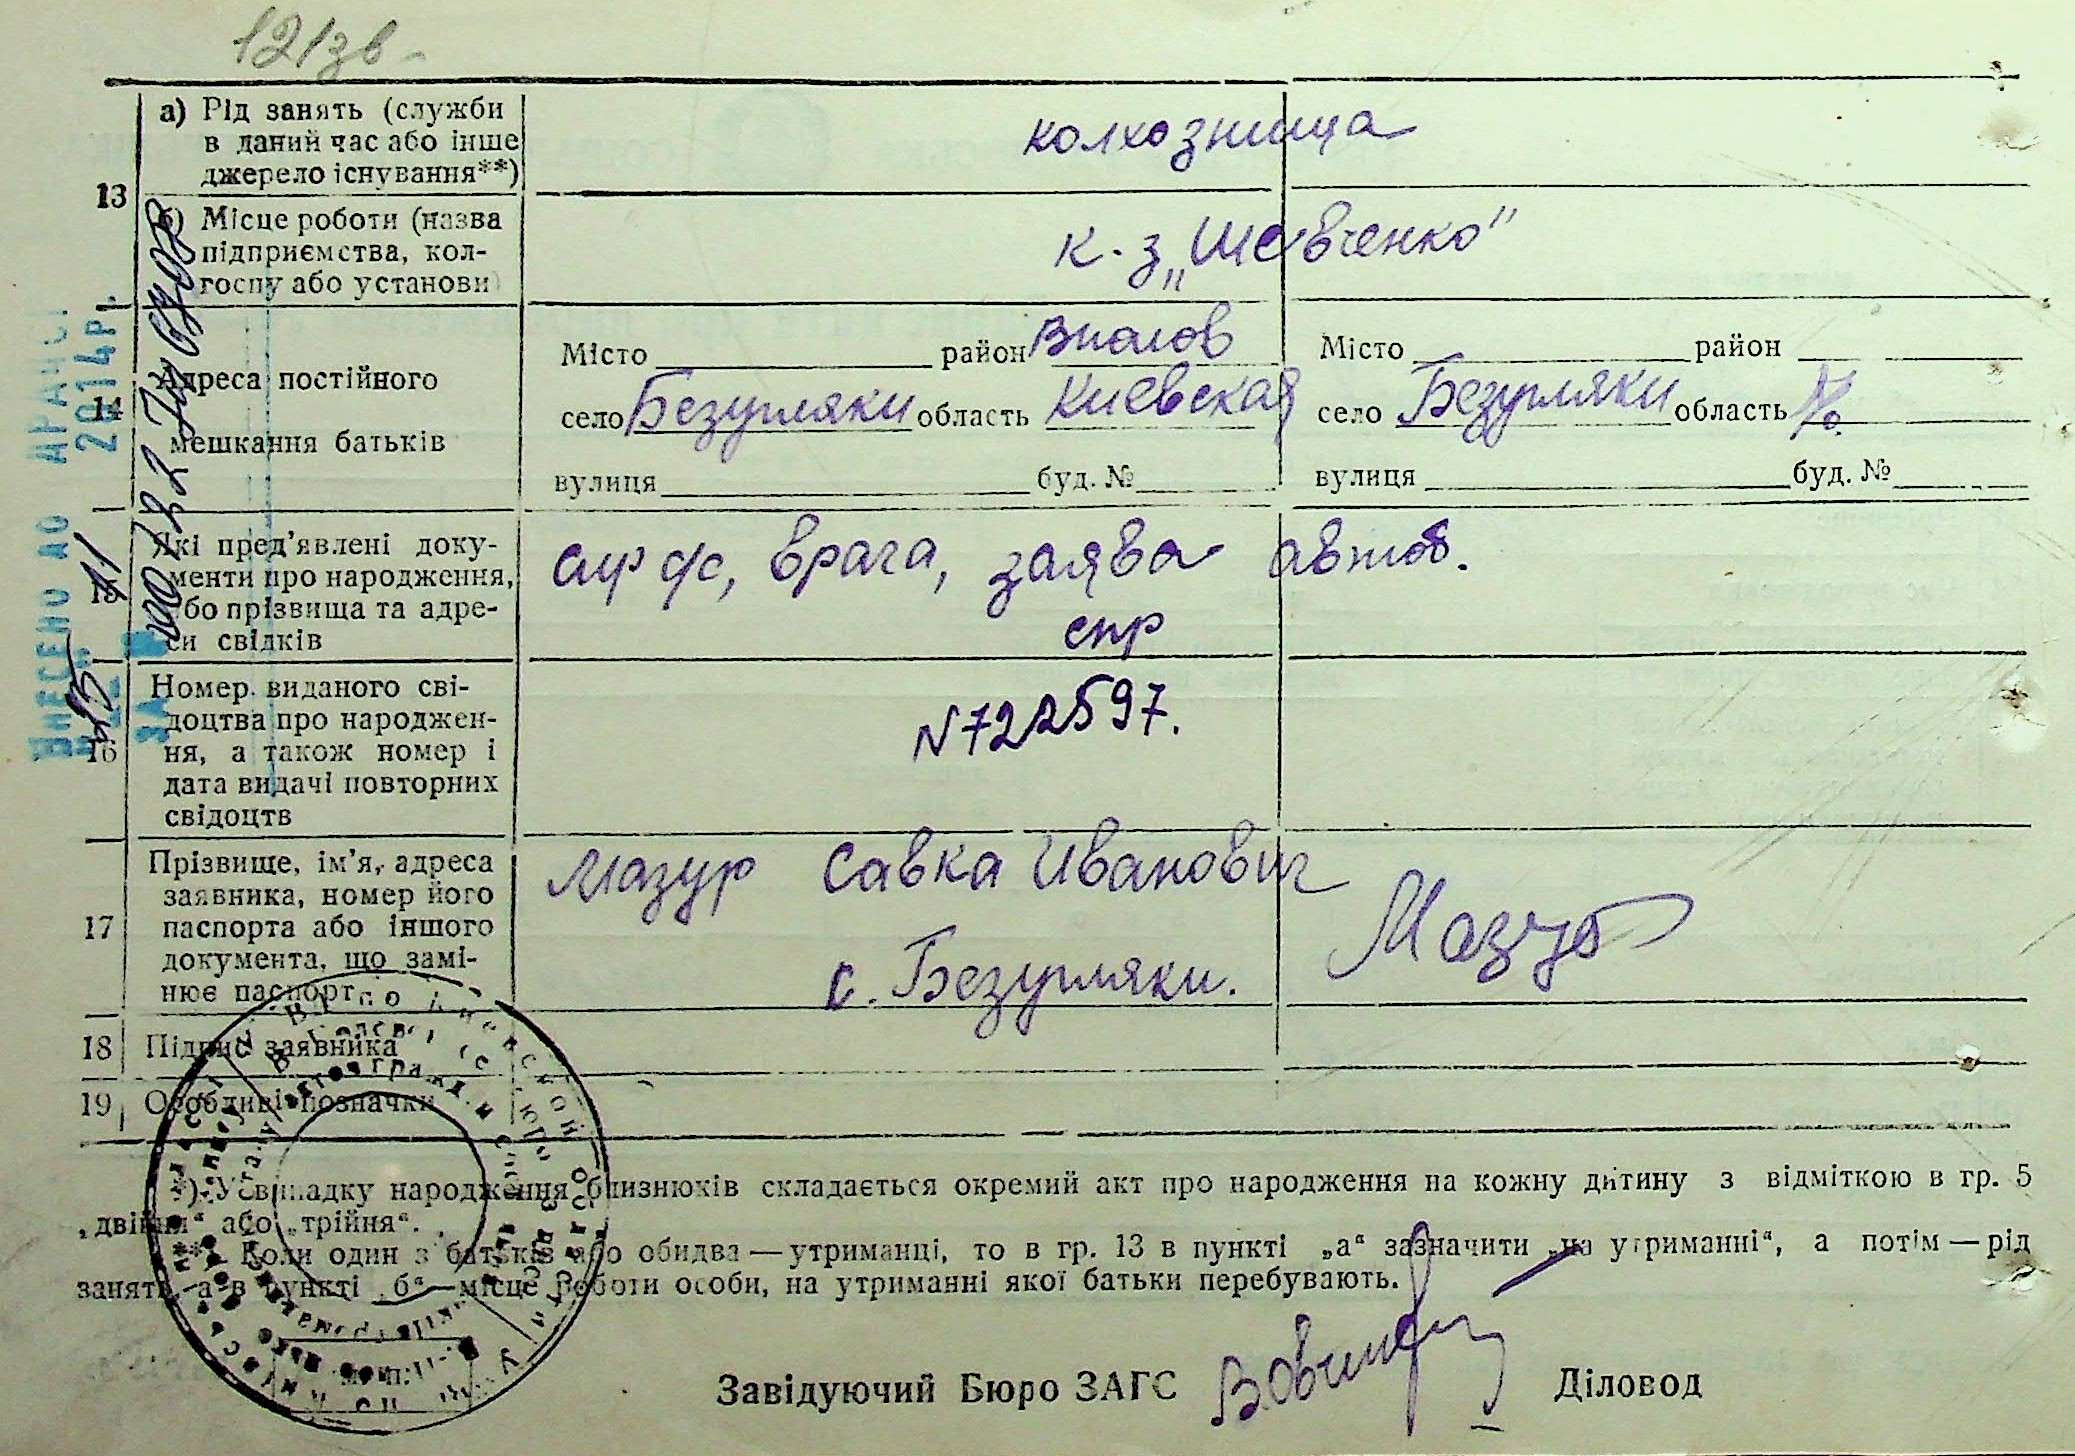 121зв
13
а) Рід занять (служби
в даний час або інше
джерело існування**)
колхозница
б) Місце роботи (назва
підприємства, кол-
госпу або установи)
к-з „Шевченко"
14
Адреса постійного
мешкання батьків
Місто район Місто район
село Безугляки область Киевская село Безугляки область
вулиця буд. № вулиця буд. №
15
Які пред'явлені доку-
менти про народження,
або прізвища та адре-
си свідків
врача, заява
спр
16
Номер виданого сві-
доцтва про народжен-
ня, а також номер і
дата видачі повторних
свідоцтв
N722597.
17
Прізвище, ім'я, адреса
заявника, номер його
паспорта або іншого
документа, що замі-
нює паспорт
Мазур Савка Иванович
с. Безугляки.
Мазур
18 Підпис заявника
19 Особливі позначки
*) У випадку народження близнюків складається окремий акт про народження на кожну дитину з відміткою в гр. 5
„двійня“ або „трійня“.
**) Коли один з батьків або обидва — утриманці, то в гр. 13 в пункті „а“ зазначити „на утриманні“, а потім — рід
занять, а в пункті „б“ — місце роботи особи, на утриманні якої батьки перебувають.
Завідуючий Бюро ЗАГС Діловод
ВНЕСЕНО ДО ДРАЦС
2014р.
ЗА №
00122